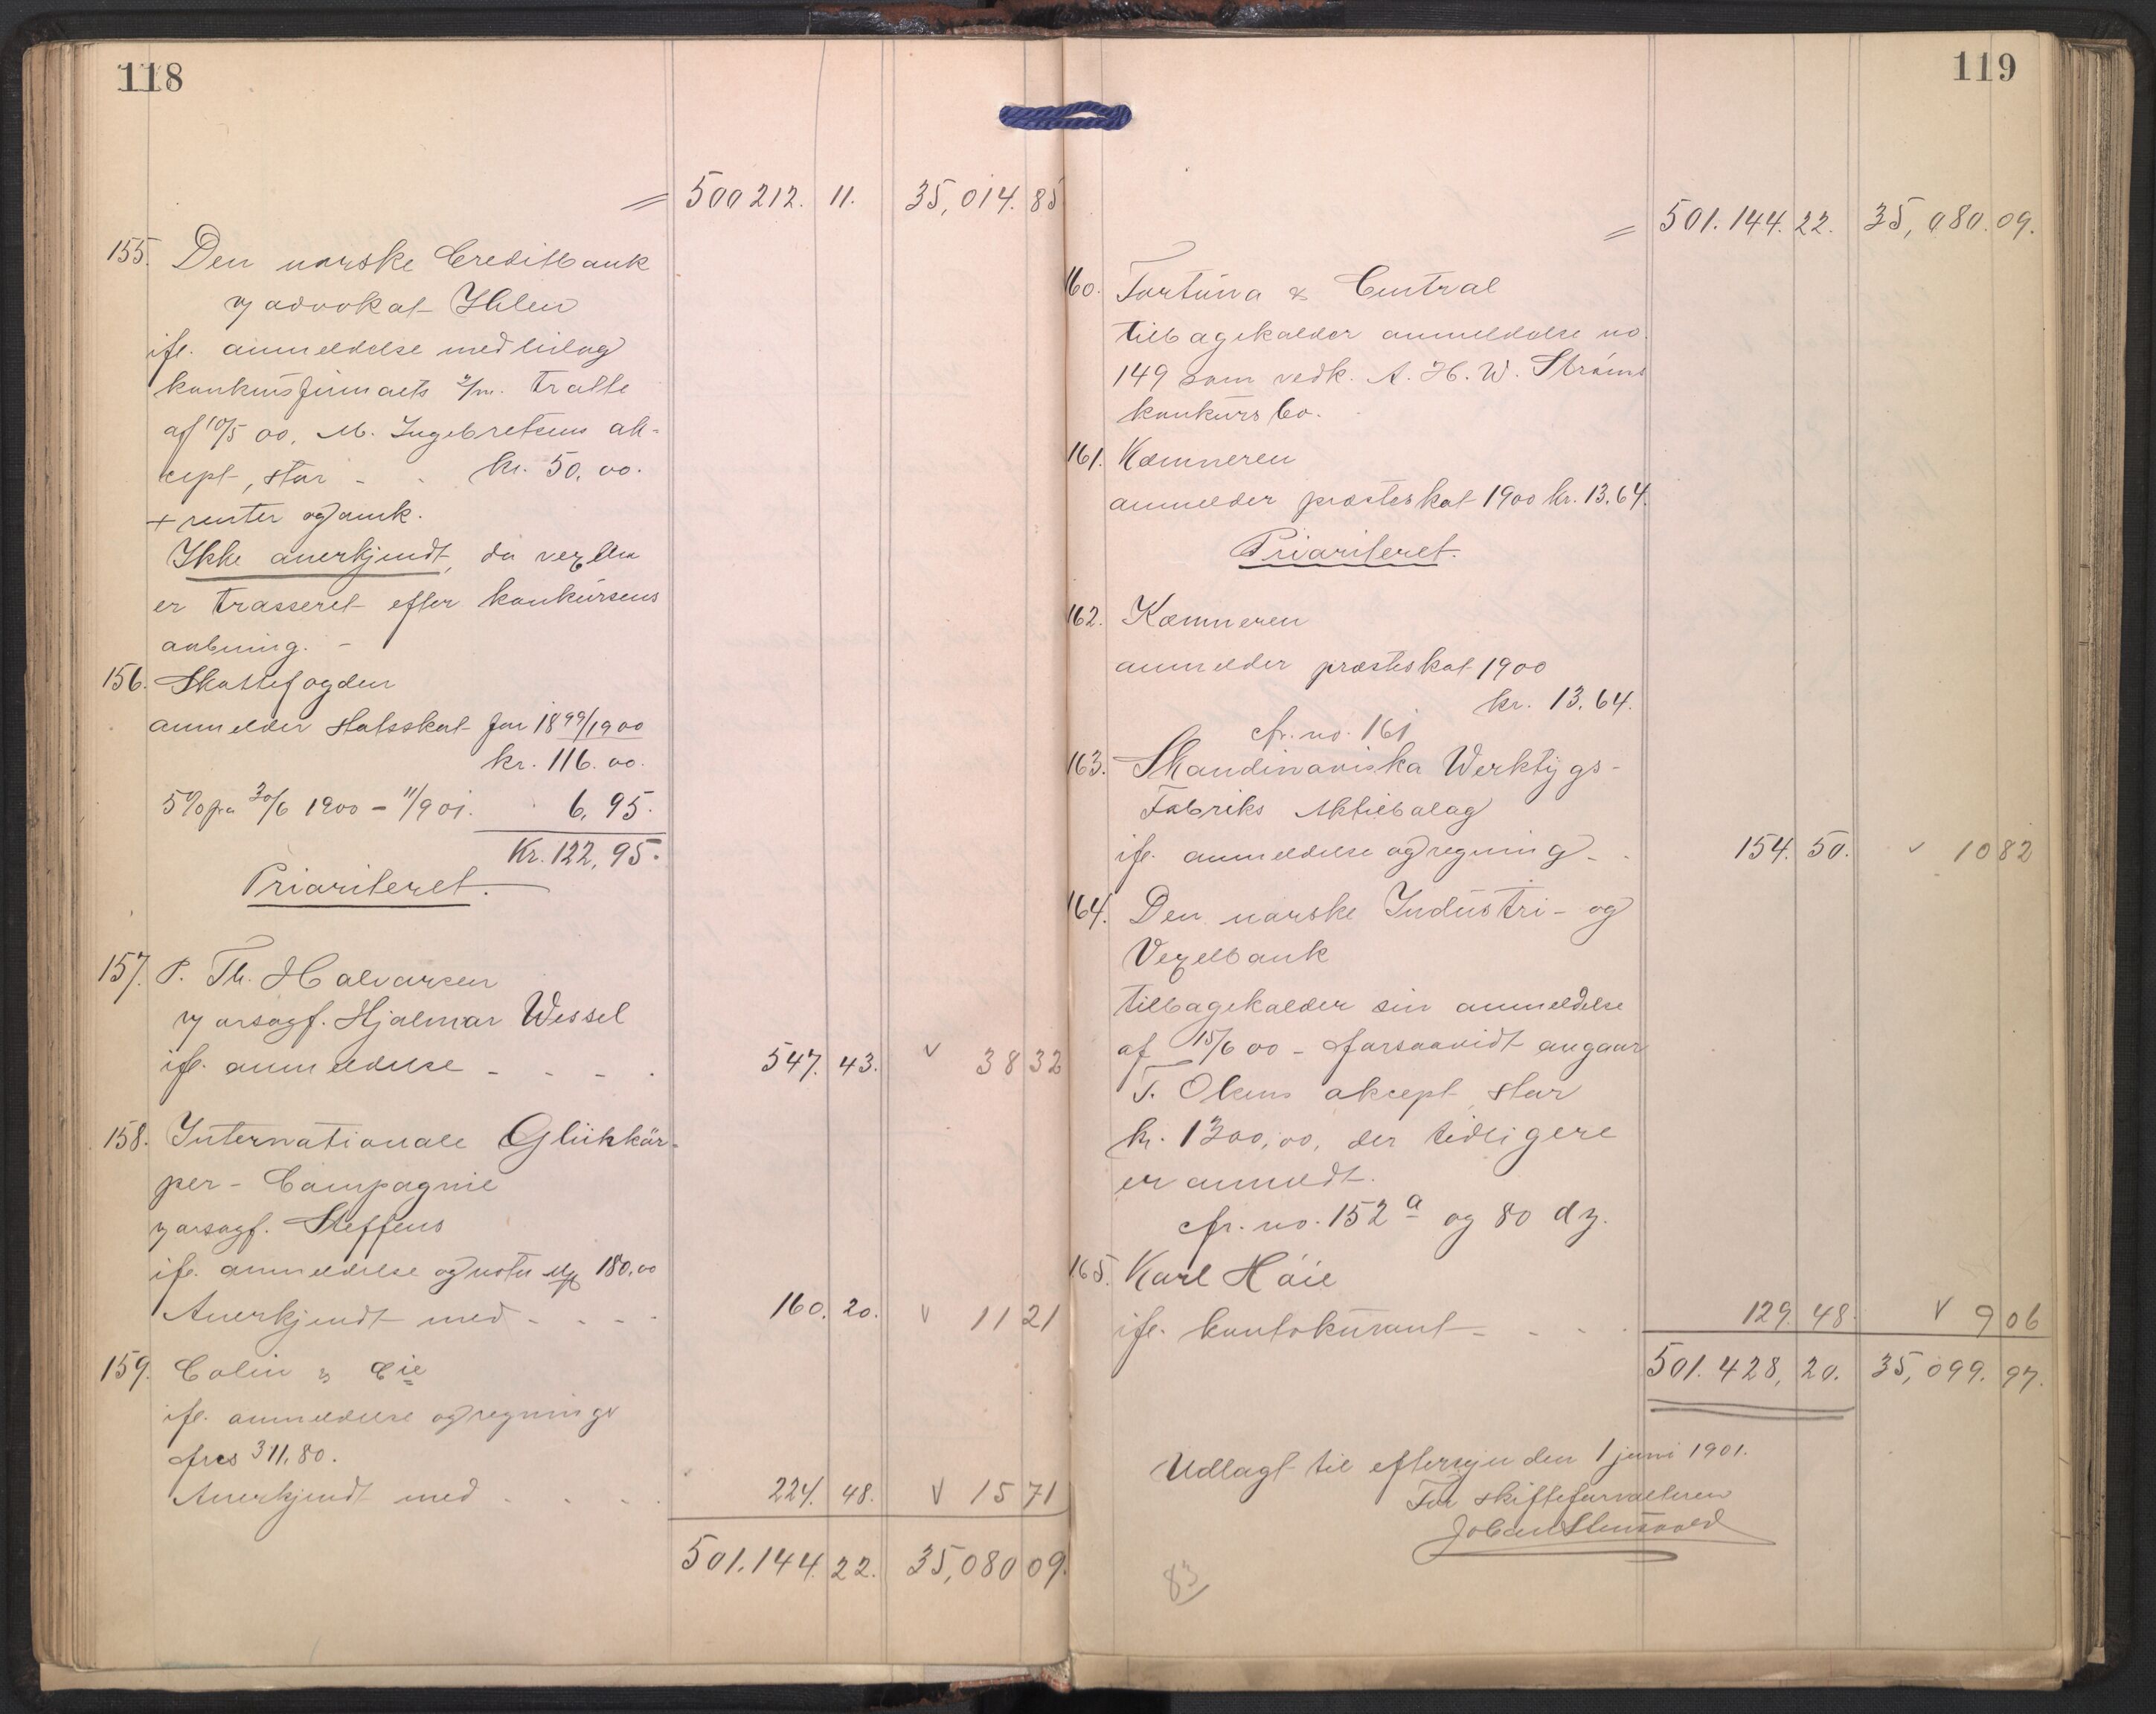 118
= 500 212. 11. 35,014. 85
155. Den norske Creditbank
v/ advokat Ihlen
ifl. anmeldelse med bilag
konkursfirmaets 2/m. tratte
af 10/5 00, M. Ingebretsens ak-
cept, stor - - kr. 50,00.
+ renter og omk.
Ikke anerkjendt, da vexlen
er trasseret efter konkursens
aabning. -
156. Skattefogden
anmelder statsskat for 1899/1900
kr. 116.00.
5% fra 30/6 1900 - 11/9 01. 6,95.
Kr. 122,95.
Prioriteret.
157. P. Th. Halvorsen
v/ orsagf. Hjalmar Wessel
ifl. anmeldelse - - - - 547. 43. v 38 32
158. Internationale Glühkör-
per-Compagnie
v/ orsagf. Steffens
ifl. anmeldelse og nota 180,00
Anerkjendt med - - - - 160. 20. v 11 21
159. Colin & Cie
ifl. anmeldelse og regning
frcs 311,80.
Anerkjendt med - - - - 224. 48. v 15 71
501.144. 22. 35,080 09.
119
= 501.144. 22. 35,080. 09.
160. Fortuna & Central
tilbagekalder anmeldelse no.
149 som vedk. A. H. W. Strøms
konkursbo.
161. Kæmneren
anmelder præsteskat 1900 kr. 13.64.
Prioriteret.
162. Kæmneren
anmelder præsteskat 1900
kr. 13.64.
cfr. no. 161
163. Skandinaviska Werktygs-
Fabriks Aktiebolag
ifl. anmeldelse og regning - - 154. 50. v 10 82
164. Den norske Industri- og
Vexelbank
tilbagekalder sin anmeldelse
af 15/6 00 - forsaavidt angaar
T. Olsens akcept, stor
kr. 1300,00, der tidligere
er anmeldt.
cfr. no. 152 a og 80 dz.
165. Karl Høie
ifl. kontokurant - - - - 129. 48. v 9 06
501.428, 20. 35,099. 97.
Udlagt til eftersyn den 1 juni 1901.
For skifteforvalteren
Johan Stensaald
83